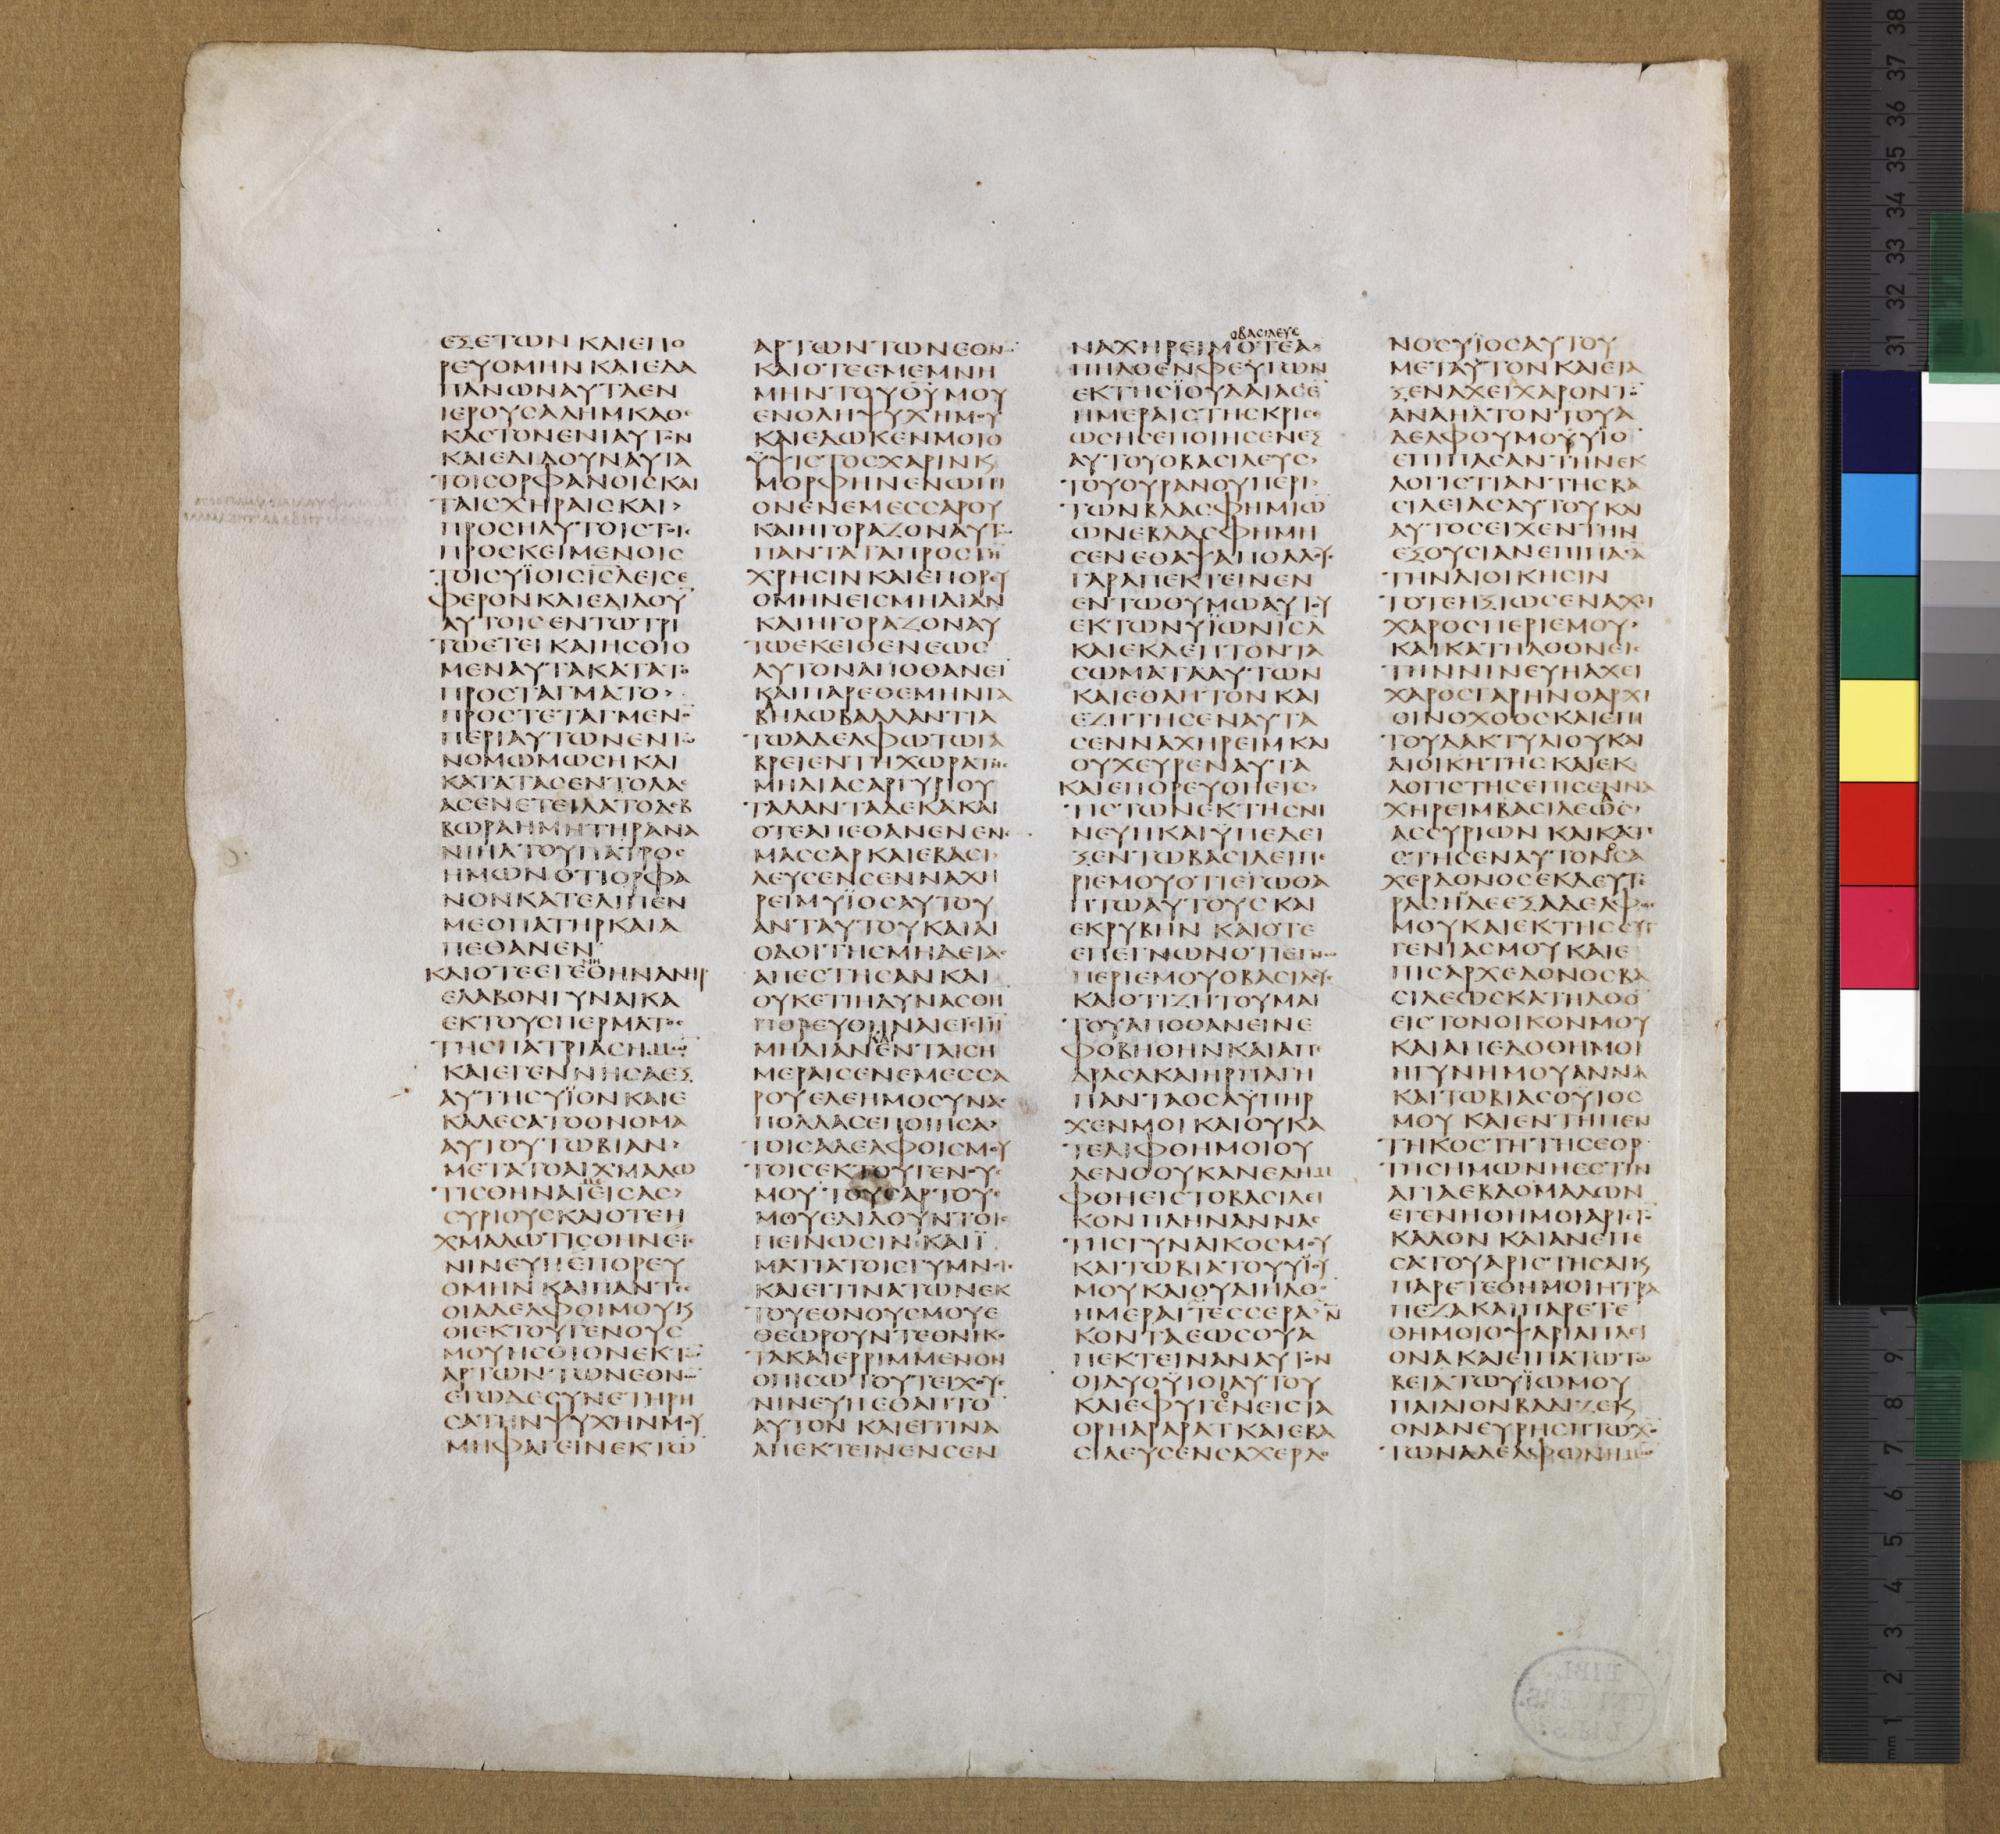 ΕΞΕΤΩΝ ΚΑΙΕΠΟ
ΡΕΥΟΜΗΝ ΚΑΙΕΔΑ
ΠΑΝΩΝΑΥΤΑΕΝ
ΙΕΡΟΥΣΑΛΗΜΚΑΘ
ΚΑΣΤΟΝΕΝΙΑΥΤΟΝ
ΚΑΙΕΔΙΔΟΥΝΑΥΤΑ
ΤΟΙΣΟΡΦΑΝΟΙΣΚΑΙ
ΤΑΙΣΧΗΡΑΙΣΚΑΙ
ΠΡΟΣΗΛΥΤΟΙΣΤΟΙ
ΠΡΟΣΚΕΙΜΕΝΟΙΣ
ΤΟΙΣΥΪΟΙΣΙΣΛΕΙΣΕ
ΦΕΡΟΝΚΑΙΕΔΙΔΟΥ
ΑΥΤΟΙΣΕΝΤΩΤΡΙ
ΤΩΕΤΕΙΚΑΙΗΣΘΙΟ
ΜΕΝΑΥΤΑΚΑΤΑΤΟ
ΠΡΟΣΤΑΓΜΑΤΟ
ΠΡΟΣΤΕΤΑΓΜΕΝΟ
ΠΕΡΙΑΥΤΩΝΕΝΤΩ
ΝΟΜΩΜΩΣΗ ΚΑΙ
ΚΑΤΑΤΑΣΕΝΤΟΛΑΣ
ΑΣΕΝΕΤΕΙΛΑΤΟΔΕΒ
ΒΩΡΑΗΜΗΤΗΡΑΝΑ
ΝΙΗΛΤΟΥΠΑΤΡΟΣ
ΗΜΩΝΟΤΙΟΡΦΑ
ΝΟΝΚΑΤΕΛΙΠΕΝ
ΜΕΟΠΑΤΗΡΚΑΙΑ
ΠΕΘΑΝΕΝ
ΚΑΙΟΤΕΕΓΕΝΗΘΗΝΑΝΗΡ
ΕΛΑΒΟΝΓΥΝΑΙΚΑ
ΕΚΤΟΥΣΠΕΡΜΑΤΟΣ
ΤΗΣΠΑΤΡΙΑΣΗΜΩΝ
ΚΑΙΕΓΕΝΝΗΣΑΕΞ
ΑΥΤΗΣΥΪΟΝΚΑΙΕ
ΚΑΛΕΣΑΤΟΟΝΟΜΑ
ΑΥΤΟΥΤΩΒΙΑΝ
ΜΕΤΑΤΟΑΙΧΜΑΛΩ
ΤΙΣΘΗΝΑΙΜΕΕΙΣΑΣ
ΣΥΡΙΟΥΣΚΑΙΟΤΕΗ
ΧΜΑΛΩΤΙΣΘΗΝΕΙΣ
ΝΙΝΕΥΗΕΠΟΡΕΥ
ΟΜΗΝ ΚΑΙΠΑΝΤΕΣ
ΟΙΑΔΕΛΦΟΙΜΟΥΚ
ΟΙΕΚΤΟΥΓΕΝΟΥΣ
ΜΟΥΗΣΘΙΟΝΕΚΤΩΝ
ΑΡΤΩΝΤΩΝΕΘΝΩΝ
ΕΓΩΔΕΣΥΝΕΤΗΡΗ
ΣΑΤΗΝΨΥΧΗΝΜΟΥ
ΜΗΦΑΓΕΙΝΕΚΤΩ
ΑΡΤΩΝΤΩΝΕΘΝΩΝ
ΚΑΙΟΤΕΕΜΕΜΝΗ
ΜΗΝΤΟΥΘΥΜΟΥ
ΕΝΟΛΗΨΥΧΗΜΟΥ
ΚΑΙΕΔΩΚΕΝΜΟΙΟ
ΫΨΙΣΤΟΣΧΑΡΙΝΚ
ΜΟΡΦΗΝΕΝΩΠΙ
ΟΝΕΝΕΜΕΣΣΑΡΟΥ
ΚΑΙΗΓΟΡΑΖΟΝΑΥΤΩ
ΠΑΝΤΑΤΑΠΡΟΣΤΗ
ΧΡΗΣΙΝ ΚΑΙΕΠΟΡΕΥ
ΟΜΗΝΕΙΣΜΗΔΙΑΝ
ΚΑΙΗΓΟΡΑΖΟΝΑΥ
ΤΩΕΚΕΙΘΕΝΕΩΣ
ΑΥΤΟΝΑΠΟΘΑΝΕΙ
ΚΑΙΠΑΡΕΘΕΜΗΝΓΑ
ΒΗΛΩΒΑΛΛΑΝΤΙΑ
ΤΩΑΔΕΛΦΩΤΩΓΑ
ΒΡΕΙΕΝΤΗΧΩΡΑΤΗΣ
ΜΗΔΙΑΣΑΡΓΥΡΙΟΥ
ΤΑΛΑΝΤΑΔΕΚΑΚΑΙ
ΟΤΕΑΠΕΘΑΝΕΝΕΝΕ
ΜΑΣΣΑΡΚΑΙΕΒΑΣΙ
ΛΕΥΣΕΝΣΕΝΝΑΧΗ
ΡΕΙΜΥΪΟΣΑΥΤΟΥ
ΑΝΤΑΥΤΟΥΚΑΙΑΙ
ΟΔΟΙΤΗΣΜΗΔΕΙΑΣ
ΑΠΕΣΤΗΣΑΝΚΑΙ
ΟΥΚΕΤΙΗΔΥΝΑΣΘΗ
ΠΟΡΕΥΘΗΝΑΙΕΙΣΤΗ
ΜΗΔΙΑΝΚΑΙΕΝΤΑΙΣΗ
ΜΕΡΑΙΣΕΝΕΜΕΣΣΑ
ΡΟΥΕΛΕΗΜΟΣΥΝΑΣ
ΠΟΛΛΑΣΕΠΟΙΗΣΑ
ΤΟΙΣΑΔΕΛΦΟΙΣΜΟΥ
ΤΟΙΣΕΚΤΟΥΓΕΝΟΥΣ
ΜΟΥΤΟΥΣΑΡΤΟΥΣ
ΜΟΥΕΔΙΔΟΥΝΤΟΙΣ
ΠΕΙΝΩΣΙΝ ΚΑΙΪ
ΜΑΤΙΑΤΟΙΣΓΥΜΝΟΙΣ
ΚΑΙΕΙΤΙΝΑΤΩΝΕΚ
ΤΟΥΕΘΝΟΥΣΜΟΥΕ
ΘΕΩΡΟΥΝΤΕΘΝΗΚΟ
ΤΑΚΑΙΕΡΡΙΜΜΕΝΟΝ
ΟΠΙΣΩΤΟΥΤΕΙΧΟΥΣ
ΝΙΝΕΥΗΕΘΑΠΤΟ
ΑΥΤΟΝ ΚΑΙΕΙΤΙΝΑ
ΑΠΕΚΤΕΙΝΕΝΣΕΝ
ΟΒΑΣΙΛΕΥΣ
ΝΑΧΗΡΕΙΜΟΤΕΑ
ΠΗΛΘΕΝΦΕΥΓΩΝ
ΕΚΤΗΣΪΟΥΔΑΙΑΣΕ
ΗΜΕΡΑΙΣΤΗΣΚΡΙΣΕ
ΩΣΗΣΕΠΟΙΗΣΕΝΕΞ
ΑΥΤΟΥΟΒΑΣΙΛΕΥΣ
ΤΟΥΟΥΡΑΝΟΥΠΕΡΙ
ΤΩΝΒΛΑΣΦΗΜΙΩ
ΩΝΕΒΛΑΣΦΗΜΗ
ΣΕΝΕΘΑΨΑΠΟΛΛΟΥΣ
ΓΑΡΑΠΕΚΤΕΙΝΕΝ
ΕΝΤΩΘΥΜΩΑΥΤΟΥ
ΕΚΤΩΝΥΪΩΝΙΣΛ
ΚΑΙΕΚΛΕΠΤΟΝΤΑ
ΣΩΜΑΤΑΑΥΤΩΝ
ΚΑΙΕΘΑΠΤΟΝ ΚΑΙ
ΕΖΗΤΗΣΕΝΑΥΤΑ
ΣΕΝΝΑΧΗΡΕΙΜΚΑΙ
ΟΥΧΕΥΡΕΝΑΥΤΑ
ΚΑΙΕΠΟΡΕΥΘΗΕΙΣ
ΤΙΣΤΩΝΕΚΤΗΣΝΙ
ΝΕΥΗΚΑΙΫΠΕΔΕΙ
ΞΕΝΤΩΒΑΣΙΛΕΙΠΕ
ΡΙΕΜΟΥΟΤΙΕΓΩΘΑ
ΠΤΩΑΥΤΟΥΣΚΑΙ
ΕΚΡΥΒΗΝ ΚΑΙΟΤΕ
ΕΠΕΓΝΩΝΟΤΙΕΓΝΩ
ΠΕΡΙΕΜΟΥΟΒΑΣΙΛΕΥΣ
ΚΑΙΟΤΙΖΗΤΟΥΜΑΙ
ΤΟΥΑΠΟΘΑΝΕΙΝΕ
ΦΟΒΗΘΗΝΚΑΙΑΠΕ
ΔΡΑΣΑΚΑΙΗΡΠΑΓΗ
ΠΑΝΤΑΟΣΑΫΠΗΡ
ΧΕΝΜΟΙΚΑΙΟΥΚΑ
ΤΕΛΙΦΘΗΜΟΙΟΥ
ΔΕΝΟΟΥΚΑΝΕΛΗΜ
ΦΘΗΕΙΣΤΟΒΑΣΙΛΕΙ
ΚΟΝΠΛΗΝΑΝΝΑΣ
ΤΗΣΓΥΝΑΙΚΟΣΜΟΥ
ΚΑΙΤΩΒΙΑΤΟΥΥΪΟΥ
ΜΟΥΚΑΙΟΥΔΙΗΛΘΟ
ΗΜΕΡΑΙΤΕΣΣΕΡΑΝ
ΚΟΝΤΑΕΩΣΟΥΑ
ΠΕΚΤΕΙΝΑΝΑΥΤΟΝ
ΟΙΔΥΟΫΙΟΙΑΥΤΟΥ
ΚΑΙΕΦΥΓΟΝΕΙΣΤΑ
ΟΡΗΑΡΑΡΑΤΚΑΙΕΒΑ
ΣΙΛΕΥΣΕΝΣΑΧΕΡΔΟ
ΝΟΣΥΪΟΣΑΥΤΟΥ
ΜΕΤΑΥΤΟΝΚΑΙΕΤΑ
ΞΕΝΑΧΕΙΧΑΡΟΝΤΟ
ΑΝΑΗΛΤΟΝΤΟΥΑ
ΔΕΛΦΟΥΜΟΥΫΙΟ
ΕΠΙΠΑΣΑΝΤΗΝΕΚ
ΛΟΓΙΣΤΙΑΝΤΗΣΒΑ
ΣΙΛΕΙΑΣΑΥΤΟΥΚΑΙ
ΑΥΤΟΣΕΙΧΕΝΤΗΝ
ΕΞΟΥΣΙΑΝΕΠΙΠΑΣΑ
ΤΗΝΔΙΟΙΚΗΣΙΝ
ΤΟΤΕΗΞΙΩΣΕΝΑΧΕΙ
ΧΑΡΟΣΠΕΡΙΕΜΟΥ
ΚΑΙΚΑΤΗΛΘΟΝΕΙΣ
ΤΗΝΝΙΝΕΥΗΑΧΕΙ
ΧΑΡΟΣΓΑΡΗΝΟΑΡΧΙ
ΟΙΝΟΧΟΟΣΚΑΙΕΠΙ
ΤΟΥΔΑΚΤΥΛΙΟΥΚΑΙ
ΔΙΟΙΚΗΤΗΣ ΚΑΙΕΚ
ΛΟΓΙΣΤΗΣΕΠΙΣΕΝΝΑ
ΧΗΡΕΙΜΒΑΣΙΛΕΩΣ
ΑΣΣΥΡΙΩΝ ΚΑΙΚΑΤΕ
ΣΤΗΣΕΝΑΥΤΟΝΟΣΑ
ΧΕΡΔΟΝΟΣΕΚΔΕΥΤΕ
ΡΑΣΗΝΔΕΕΞΑΔΕΛΦΟΣ
ΜΟΥΚΑΙΕΚΤΗΣΣΥΓ
ΓΕΝΙΑΣΜΟΥΚΑΙΕ
ΠΙΣΑΡΧΕΔΟΝΟΣΒΑ
ΣΙΛΕΩΣΚΑΤΗΛΘΟ
ΕΙΣΤΟΝΟΙΚΟΝΜΟΥ
ΚΑΙΑΠΕΔΟΘΗΜΟΙ
ΗΓΥΝΗΜΟΥΑΝΝΑ
ΚΑΙΤΩΒΙΑΣΟΥΙΟΣ
ΜΟΥ ΚΑΙΕΝΤΗΠΕΝ
ΤΗΚΟΣΤΗΤΗΣΕΟΡ
ΤΗΣΗΜΩΝΗΕΣΤΙΝ
ΑΓΙΑΕΒΔΟΜΑΔΩΝ
ΕΓΕΝΗΘΗΜΟΙΑΡΙΣΤΟ
ΚΑΛΟΝ ΚΑΙΑΝΕΠΕ
ΣΑΤΟΥΑΡΙΣΤΗΣΑΙΚ
ΠΑΡΕΤΕΘΗΜΟΙΗΤΡΑ
ΠΕΖΑΚΑΙΠΑΡΕΤΕ
ΘΗΜΟΙΟΨΑΡΙΑΠΛΕΙ
ΟΝΑ ΚΑΙΕΙΠΑΤΩΤΩ
ΒΕΙΑΤΩΥΪΩΜΟΥ
ΠΑΙΔΙΟΝΒΑΔΙΖΕΚ
ΟΝΑΝΕΥΡΗΣΠΤΩΧΟΝ
ΤΩΝΑΔΕΛΦΩΝΗΜΩΝ